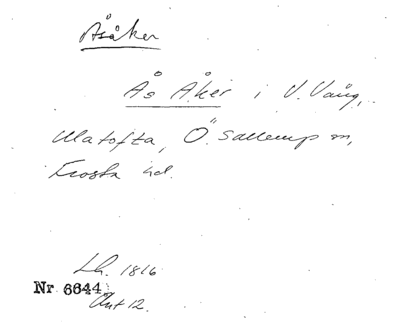 Åsåker
Ås Åker i V. Vång,
Ulatofta, Ö. Sallerup sn,
Frosta hd.
Lh. 1816
Nr 6644
Akt 12.